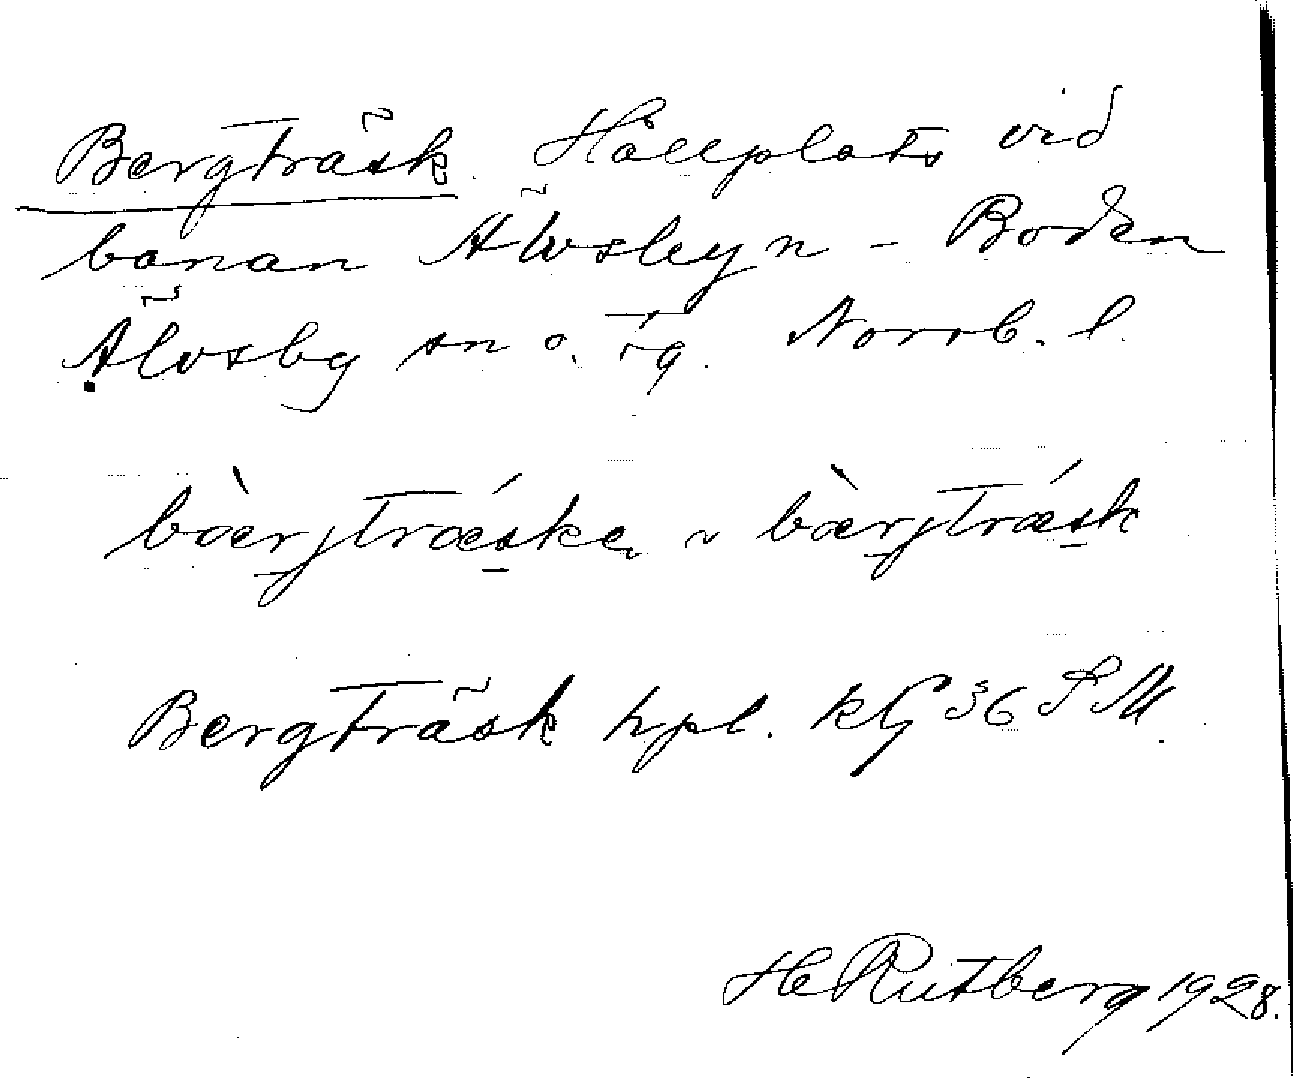 Bergträsk Hållplats vid
banan Älvsbyn - Boden
Älvsby sn o. tg. Norrb. l.
bærjtræske ~ bærjtræsk
Bergträsk hpl. kbl 36 S M.
H Rutberg 1928.